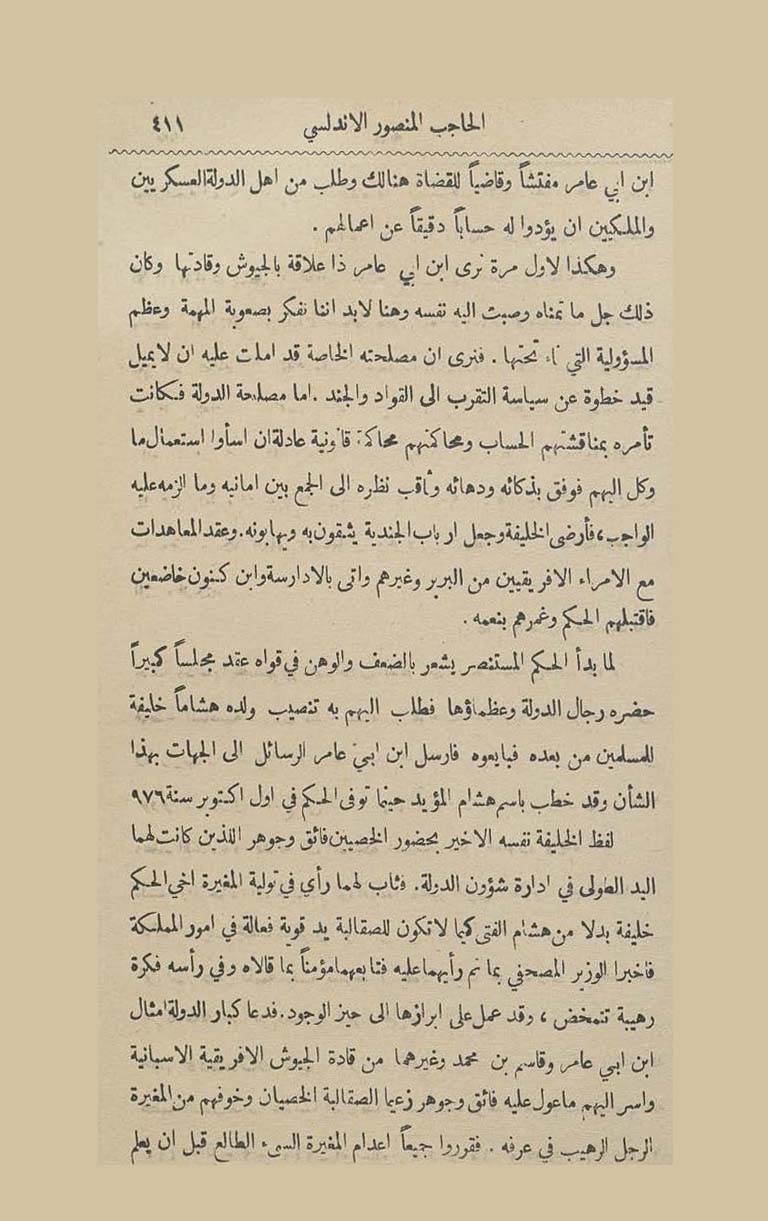 الحاجب المنصور الاندلسي ٤١١
ابن ابي عامر مفتشاً وقاضياً للقضاة هنالك وطلب من اهل الدولة العسكريين
والملكيين ان يؤدوا له حساباً دقيقاً عن اعمالهم .
وهكذا لاول مرة نرى ابن ابي عامر ذا علاقة بالجيوش وقادتها وكان
ذلك جل ما تمناه وصبت اليه نفسه وهنا لابد اننا نفكر بصعوبة المهمة وعظم
المسؤولية التي ناء تحتها . فنرى ان مصلحته الخاصة قد املت عليه ان لايميل
قيد خطوة عن سياسة التقرب الى القواد والجند . اما مصلحة الدولة فكانت
تأمره بمناقشتهم الحساب ومحاكمتهم محاكمة قانونية عادلة ان اسأوا استعمال ما
وكل اليهم فوفق بذكائه ودهائه وثاقب نظره الى الجمع بين امانيه وما الزمه عليه
الواجب، فأرضى الخليفة وجعل ارباب الجندية يثقون به ويهابونه. وعقد المعاهدات
مع الامراء الافريقيين من البربر وغيرهم واتى بالادارسة وابن كنون خاضعين
فاقتبلهم الحكم وغمرهم بنعمه .
لما بدأ الحكم المستنصر يشعر بالضعف والوهن في قواه عقد مجلساً كبيراً
حضره رجال الدولة وعظماؤها فطلب اليهم به تنصيب ولده هشاماً خليفة
للمسلمين من بعده فبايعوه فارسل ابن ابي عامر الرسائل الى الجهات بهذا
الشأن وقد خطب باسم هشام المؤيد حينما توفى الحكم في اول اكتوبر سنة ٩٧٦
لفظ الخليفة نفسه الاخير بحضور الخصيين فائق وجوهر اللذين كانت لهما
اليد الطولى في ادارة شؤون الدولة. فثاب لهما رأي في تولية المغيرة اخي الحكم
خليفة بدلا من هشام الفتى كيما لا تكون للصقالبة يد قوية فعالة في امور المملكة
فاخبرا الوزير المصحفي بما تم رأيهما عليه فتابعهما مؤمناً بما قالاه وفي رأسه فكرة
رهيبة تتمخض ، وقد عمل على ابرازها الى حيز الوجود. فدعا كبار الدولة امثال
ابن ابي عامر وقاسم بن محمد وغيرهما من قادة الجيوش الافريقية الاسبانية
واسر اليهم ماعول عليه فائق وجوهر زعيما الصقالبة الخصيان وخوفهم من المغيرة
الرجل الرهيب في عرفه . فقرروا جميعاً اعدام المغيرة السيء الطالع قبل ان يعلم